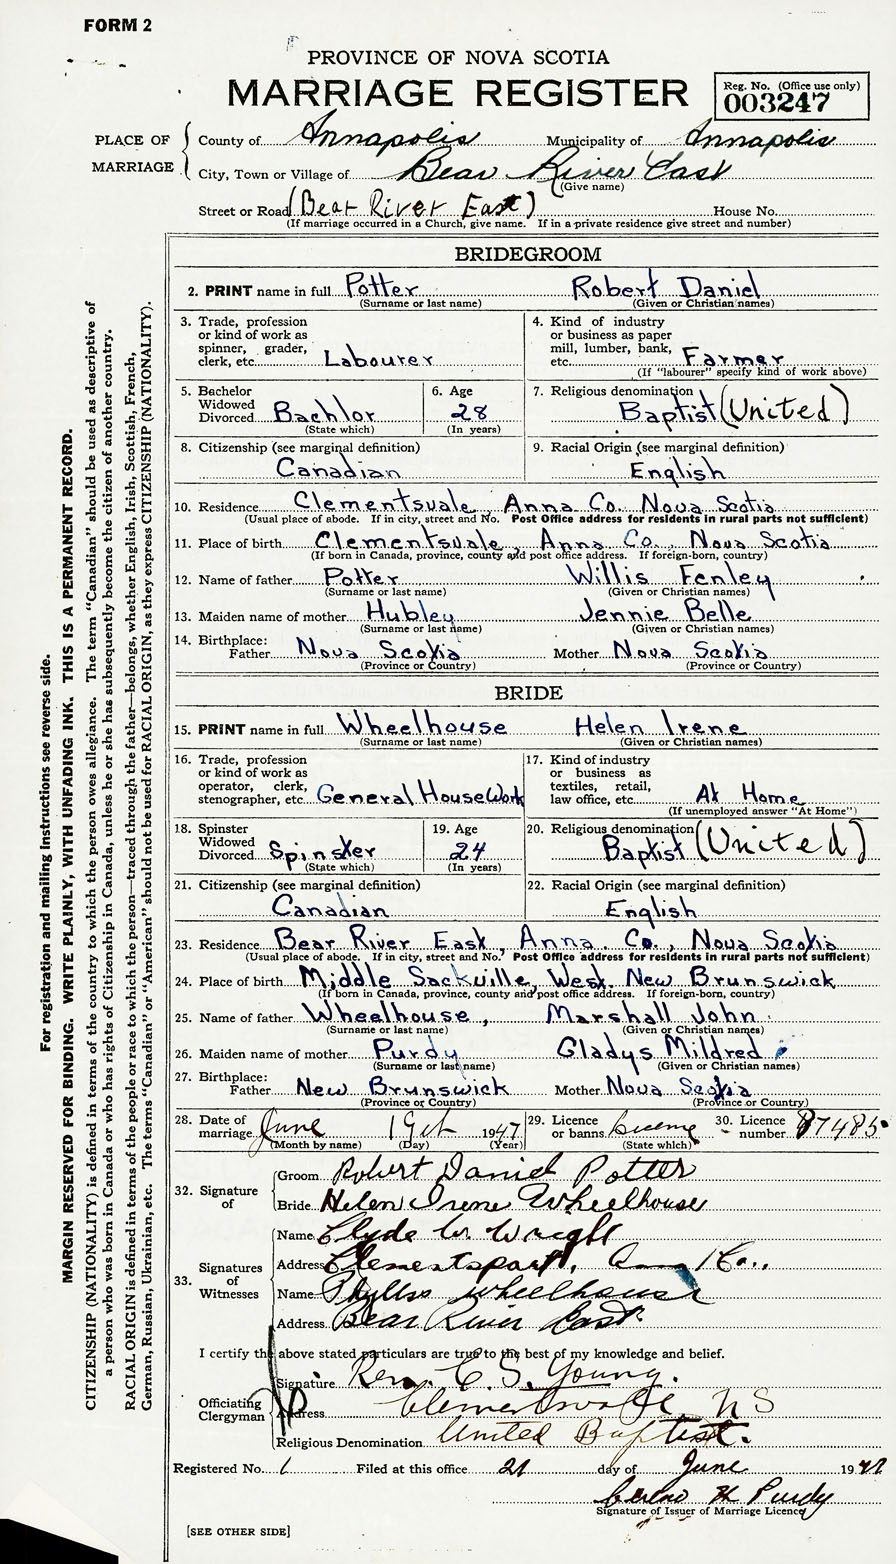 FORM 2
PROVINCE OF NOVA SCOTIA
MARRIAGE REGISTER
Reg. No. (Office use only)
003247
PLACE OF MARRIAGE
County of Annapolis Municipality of Annapolis
City, Town or Village of Bear River East
(Give name)
Street or Road (Bear River East) House No.
(If marriage occurred in a Church, give name. If in a private residence give street and number)
BRIDEGROOM
2. PRINT name in full Potter Robert Daniel
(Surname or last name) (Given or Christian names)
3. Trade, profession or kind of work as spinner, grader, clerk, etc. Labourer
4. Kind of industry or business as paper mill, lumber, bank, etc. Farmer
(If "labourer" specify kind of work above)
5. Bachelor Widowed Divorced Bachlor
(State which)
6. Age 28
(In years)
7. Religious denomination Baptist (United)
8. Citizenship (see marginal definition) Canadian
9. Racial Origin (see marginal definition) English
10. Residence Clementsvale, Anna Co. Nova Scotia
(Usual place of abode. If in city, street and No. Post Office address for residents in rural parts not sufficient)
11. Place of birth Clementsvale, Anna Co., Nova Scotia
(If born in Canada, province, county and post office address. If foreign-born, country)
12. Name of father Potter Willis Fenley
(Surname or last name) (Given or Christian names)
13. Maiden name of mother Hubley Jennie Belle
(Surname or last name) (Given or Christian names)
14. Birthplace:
Father Nova Scotia Mother Nova Scotia
(Province or Country) (Province or Country)
BRIDE
15. PRINT name in full Wheelhouse Helen Irene
(Surname or last name) (Given or Christian names)
16. Trade, profession or kind of work as operator, clerk, stenographer, etc. General HouseWork
17. Kind of industry or business as textiles, retail, law office, etc. At Home
(If unemployed answer "At Home")
18. Spinster Widowed Divorced Spinster
(State which)
19. Age 24
(In years)
20. Religious denomination Baptist (United)
21. Citizenship (see marginal definition) Canadian
22. Racial Origin (see marginal definition) English
23. Residence Bear River East, Anna. Co., Nova Scotia
(Usual place of abode. If in city, street and No. Post Office address for residents in rural parts not sufficient)
24. Place of birth Middle Sackville, West. New Brunswick
(If born in Canada, province, county and post office address. If foreign-born, country)
25. Name of father Wheelhouse, Marshall John
(Surname or last name) (Given or Christian names)
26. Maiden name of mother Purdy Gladys Mildred
(Surname or last name) (Given or Christian names)
27. Birthplace:
Father New Brunswick Mother Nova Scotia
(Province or Country) (Province or Country)
28. Date of marriage June 19th 1947
(Month by name) (Day) (Year)
29. Licence or banns license
(State which)
30. Licence number 87485
32. Signature of
Groom Robert Daniel Potter
Bride Helen Irene Wheelhouse
33. Signatures of Witnesses
Name Clyde W. Wright
Address Clementsport, Anna Co.,
Name Phyllis Wheelhouse
Address Bear River East.
I certify the above stated particulars are true to the best of my knowledge and belief.
Officiating Clergyman
Signature Rev. C. S. Young.
Address Clementsvale, N S
Religious Denomination United Baptist.
Registered No. 1 Filed at this office 21 day of June 1947
H Purdy
Signature of Issuer of Marriage Licence
[SEE OTHER SIDE]
For registration and mailing instructions see reverse side.
MARGIN RESERVED FOR BINDING. WRITE PLAINLY, WITH UNFADING INK. THIS IS A PERMANENT RECORD.
CITIZENSHIP (NATIONALITY) is defined in terms of the country to which the person owes allegiance. The term "Canadian" should be used as descriptive of
a person who was born in Canada or who has rights of Citizenship in Canada, unless he or she has subsequently become the citizen of another country.
RACIAL ORIGIN is defined in terms of the people or race to which the person—traced through the father—belongs, whether English, Irish, Scottish, French,
German, Russian, Ukrainian, etc. The terms "Canadian" or "American" should not be used for RACIAL ORIGIN, as they express CITIZENSHIP (NATIONALITY).